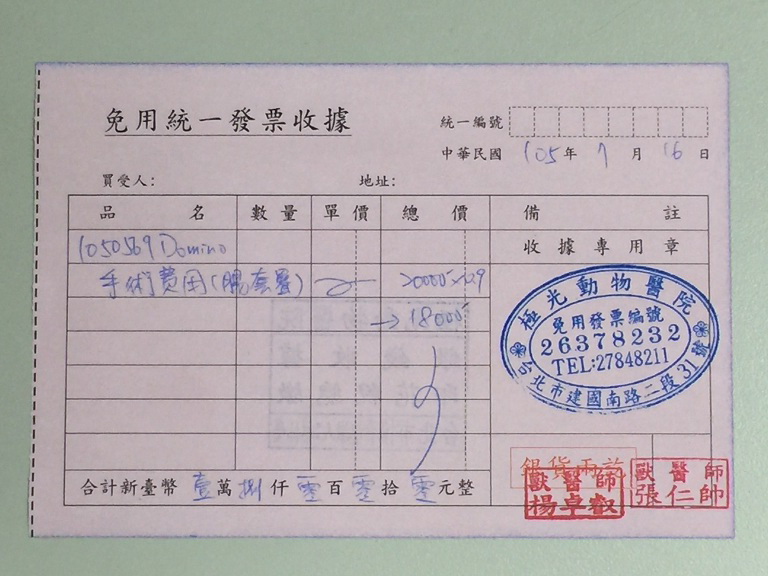 免用統一發票收據
統一編號
中華民國 105 年 7 月 16 日
買受人: 地址:
品名 數量 單價 總價 備註
1050569 Domino 收據專用章
手術費用(腸套疊) 20000×0.9
→ 18000
極光動物醫院
免用發票編號
26378232
TEL:27848211
台北市建國南路二段31號
合計新臺幣 壹 萬 捌 仟 零 百 零 拾 零 元整
銀貨兩訖
獸醫師
楊卓叡
獸醫師
張仁帥